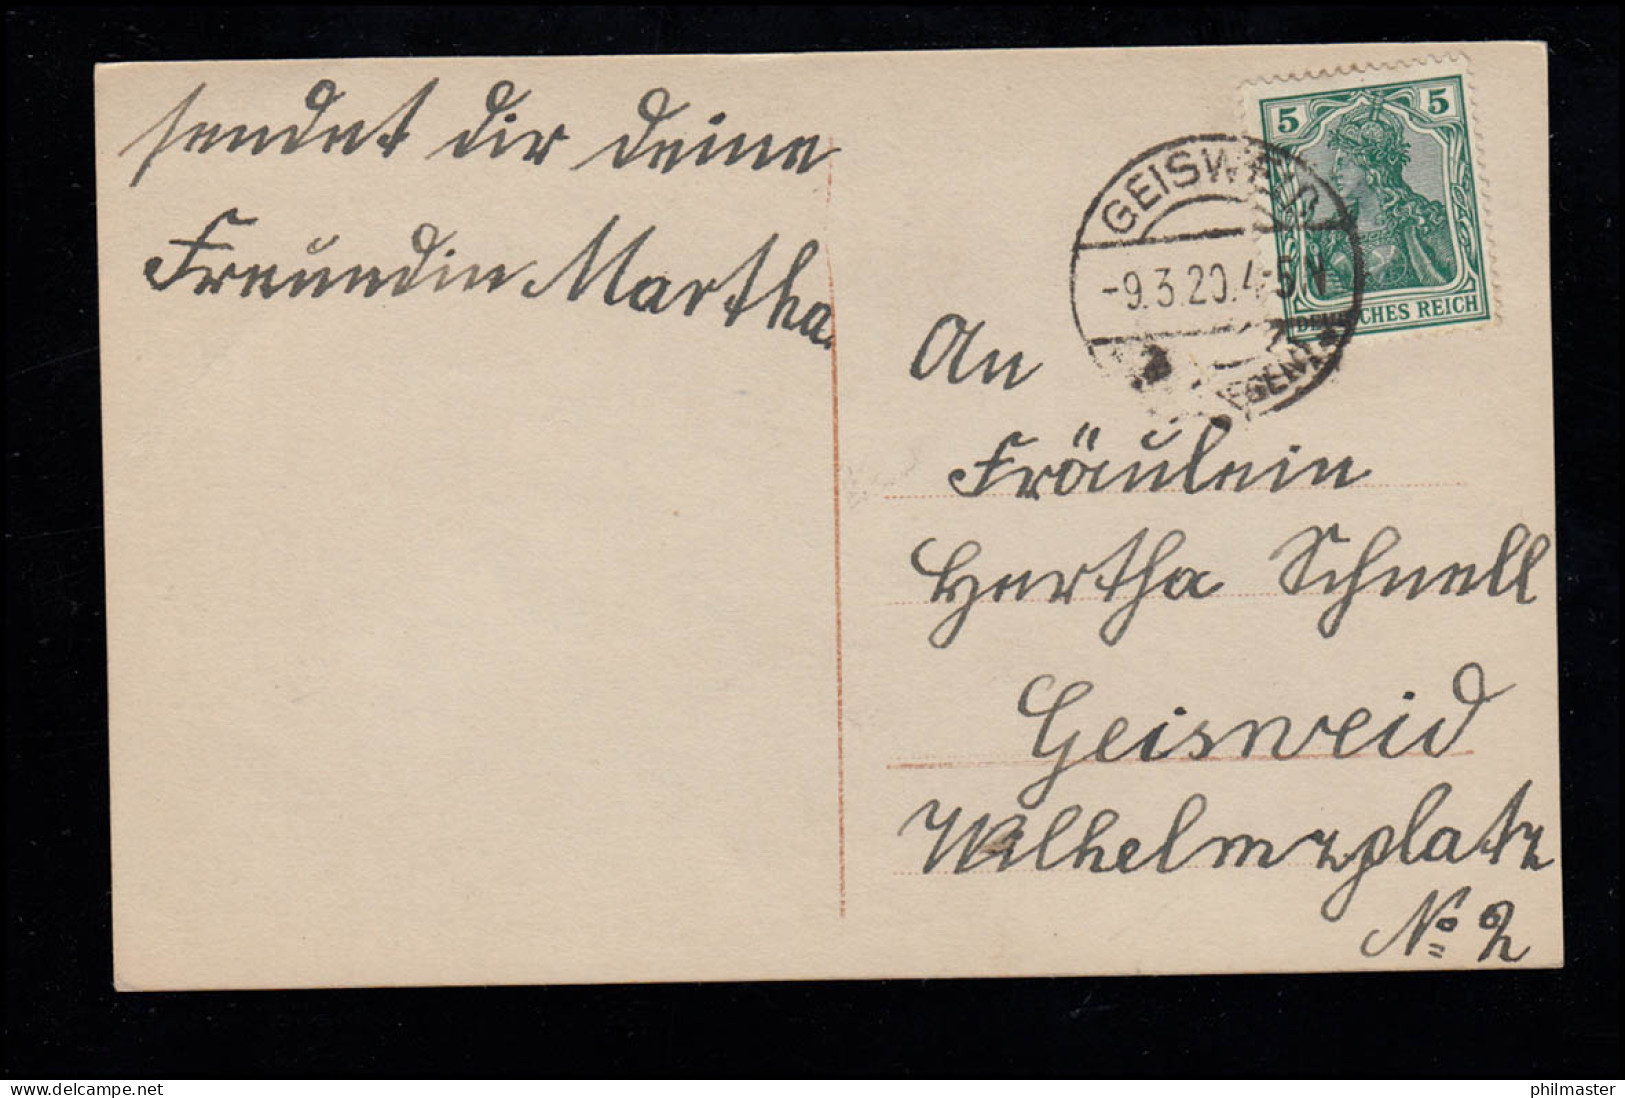 sendet dir deine
Freundin Martha.
5 5
DEUTSCHES REICH
GEISWEID
-9.3.20.4-5N
An
Fräulein
Hertha Schnell
Geisweid
Wilhelmsplatz
No 2
www.delcampe.net
philmaster